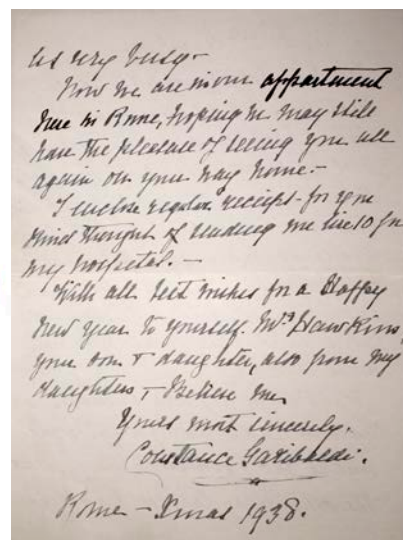 us very busy -
Now we are in our appartment
here in Rome, hoping we may still
have the pleasure of seeing you all
again on your way home. -
I enclose regular receipt - for your
kind thought of sending me Lire 10 for
my hospital. -
With all best wishes for a Happy
New Year to yourself. Mrs Hawkins,
your son & daughter, also from my
daughters & Believe me,
Yours most sincerely.
Constance Garibaldi.
Rome - Xmas 1938.